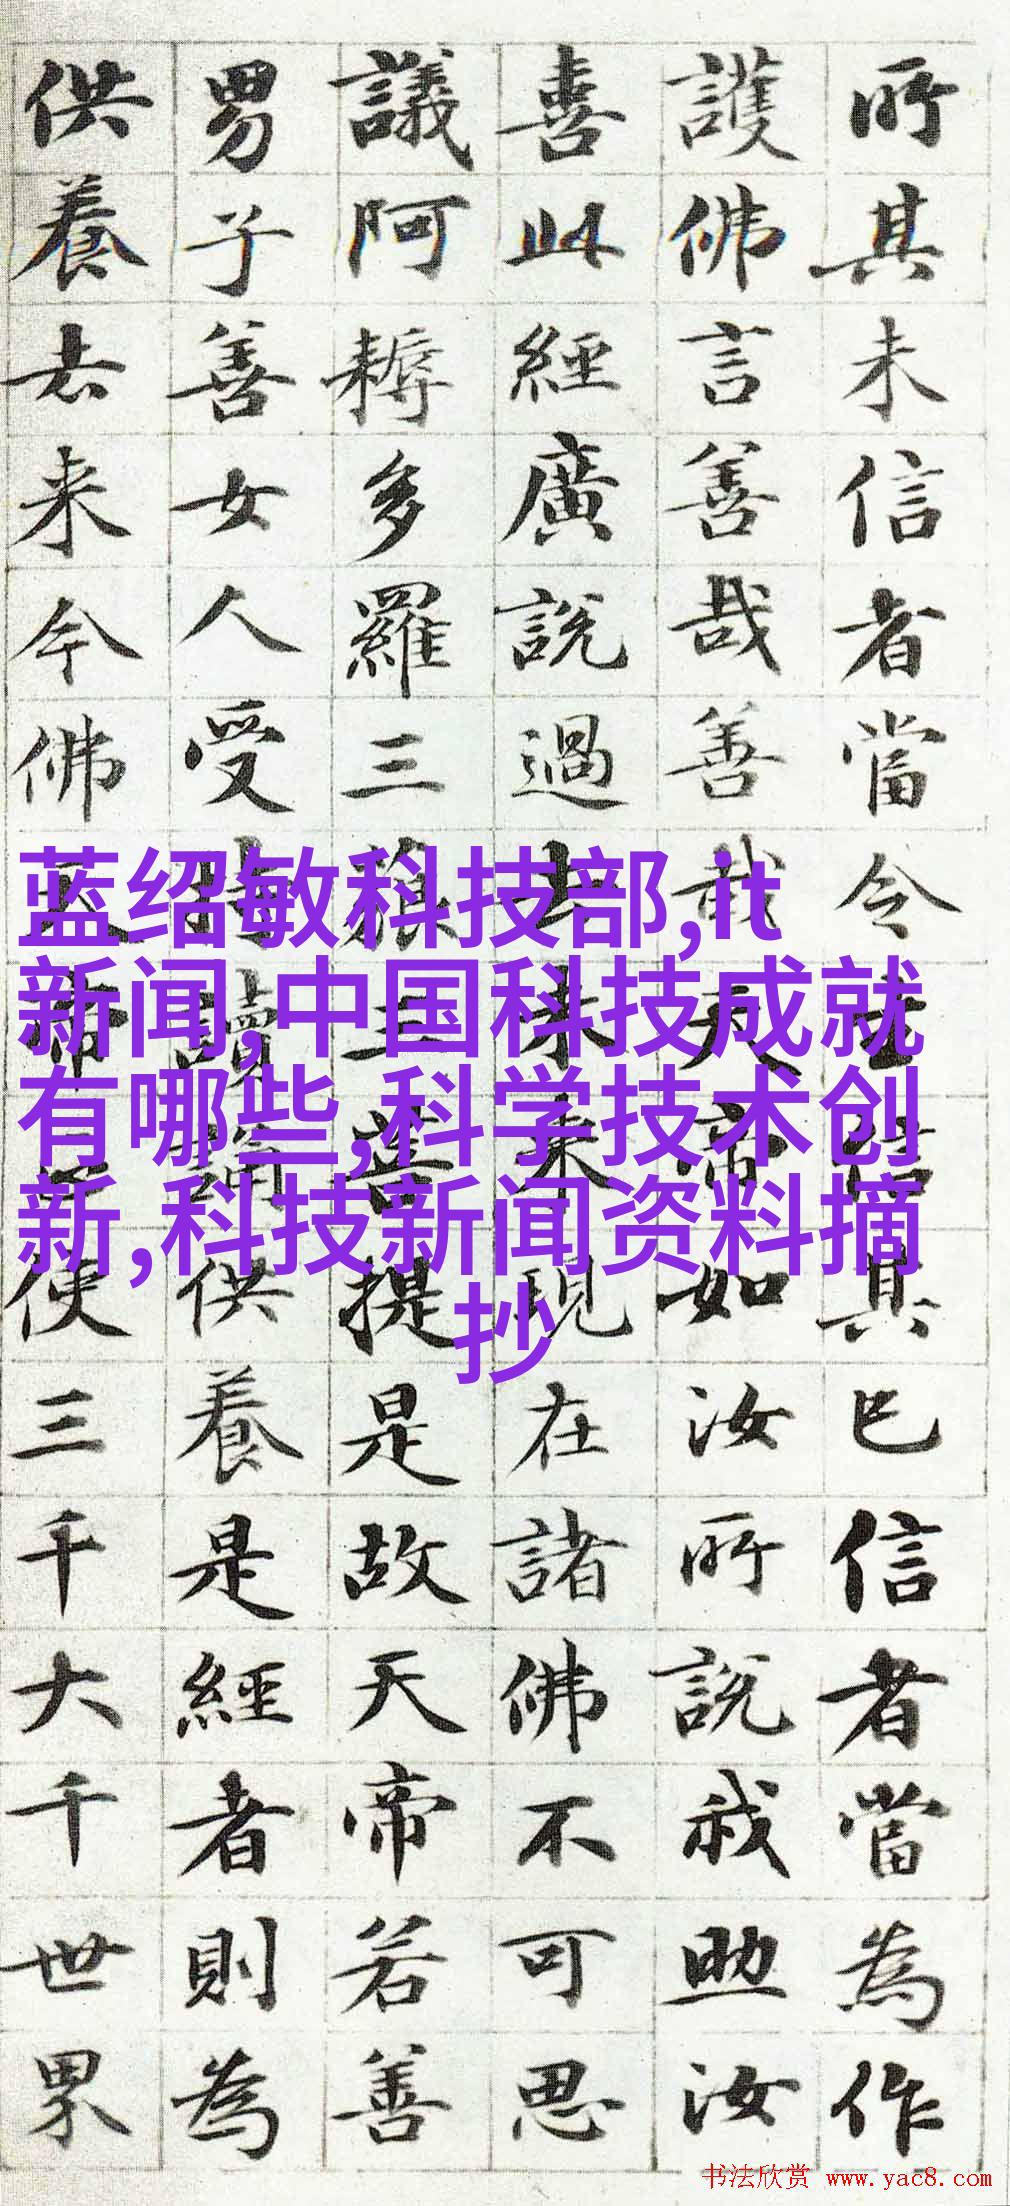 所其未信者當令生信其已信者當為作
護佛言善哉善哉天帝如汝所說我助汝
喜此經廣說過去未来現在諸佛不可思
議阿耨多羅三藐三菩提是故天帝若善
男子善女人受持讀誦供養是經者則為
供養去来今佛天帝使三千大千世界
蓝绍敏科技部,it
新闻,中国科技成就
有哪些,科学技术创
新,科技新闻资料摘
抄
书法欣赏 www.yac8.com